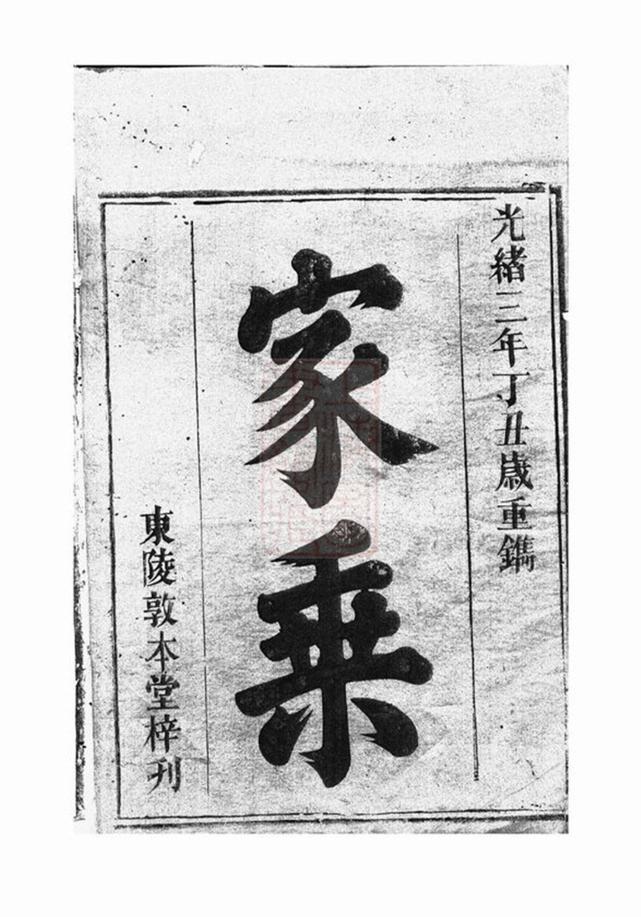 光緒三年丁丑歲重鐫
家乘
東陵敦本堂梓刊